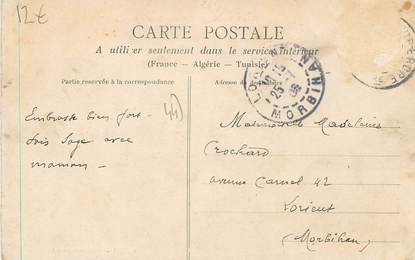 12€
CARTE POSTALE
A utiliser seulement dans le service intérieur
(France - Algérie - Tunisie)
Partie réservée à la correspondance
Adresse du
LORIENT
25
MORBIHAN
44
Embrasse bien fort -
Sois sage avec
maman -
Mademoiselle Madeleine
Crochard
avenue Carnel 42
Lorient
(Morbihan)